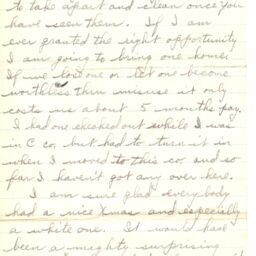 to take apart and clean once you
have seen them. If I am
ever granted the right opportunity
I am going to bring one home.
If we lose one or let one become
worthless thru misuse it only
costs us about 5 months pay.
I had one checked out while I was
in C co. but had to turn it in
when I moved to this co. and so
far I haven't got any over here.
I am sure glad everybody
had a nice Xmas and especially
a white one. It would have
been a mighty surprising